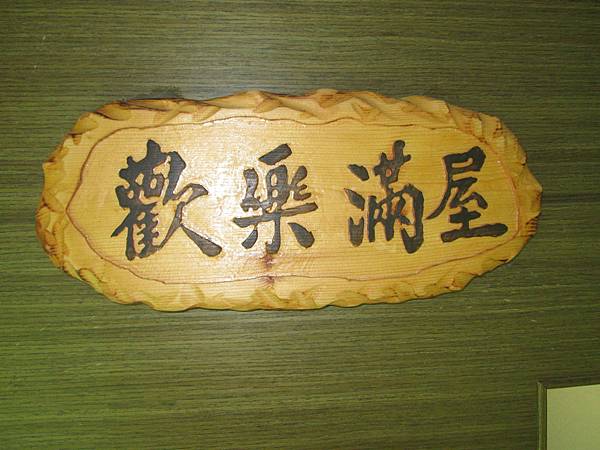 歡樂滿屋